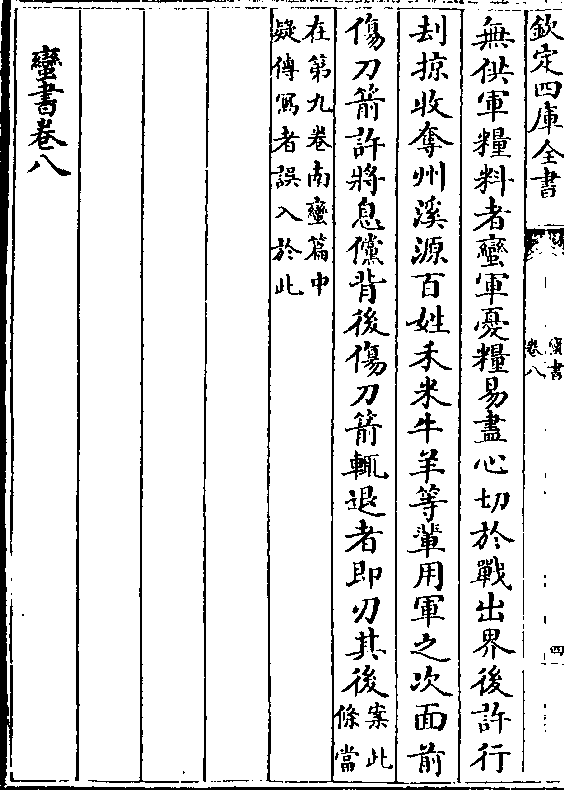 欽定四庫全書
蠻書
卷八
四
無供軍糧料者蠻軍憂糧易盡心切於戰出界後許行
刦掠收奪州溪源百姓禾米牛羊等輩用軍之次面前
傷刀箭許將息儻背後傷刀箭輒退者即刃其後案此
條當
在第九卷南蠻篇中
疑傳寫者誤入於此
蠻書卷八